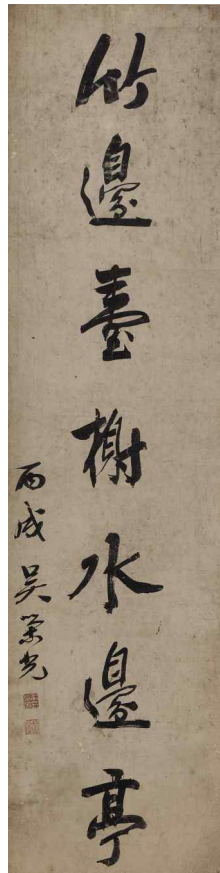 竹邊臺榭水邊亭
丙戌 吳榮光